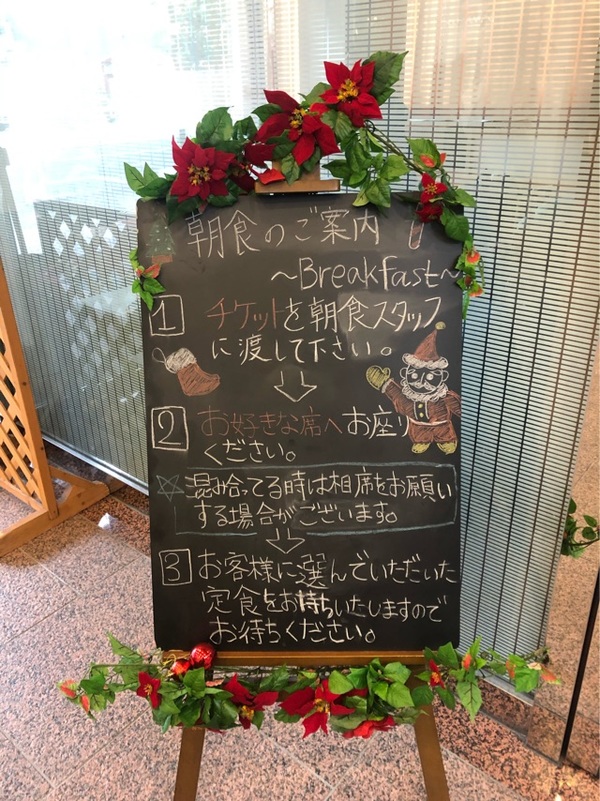 朝食のご案内
～Breakfast～
1 チケットを朝食スタッフ
に渡して下さい。
2 お好きな席へお座り
ください。
☆混み合ってる時は相席をお願い
する場合がございます。
3 お客様に選んでいただいた
定食をお持ちいたしますので
お待ちください。